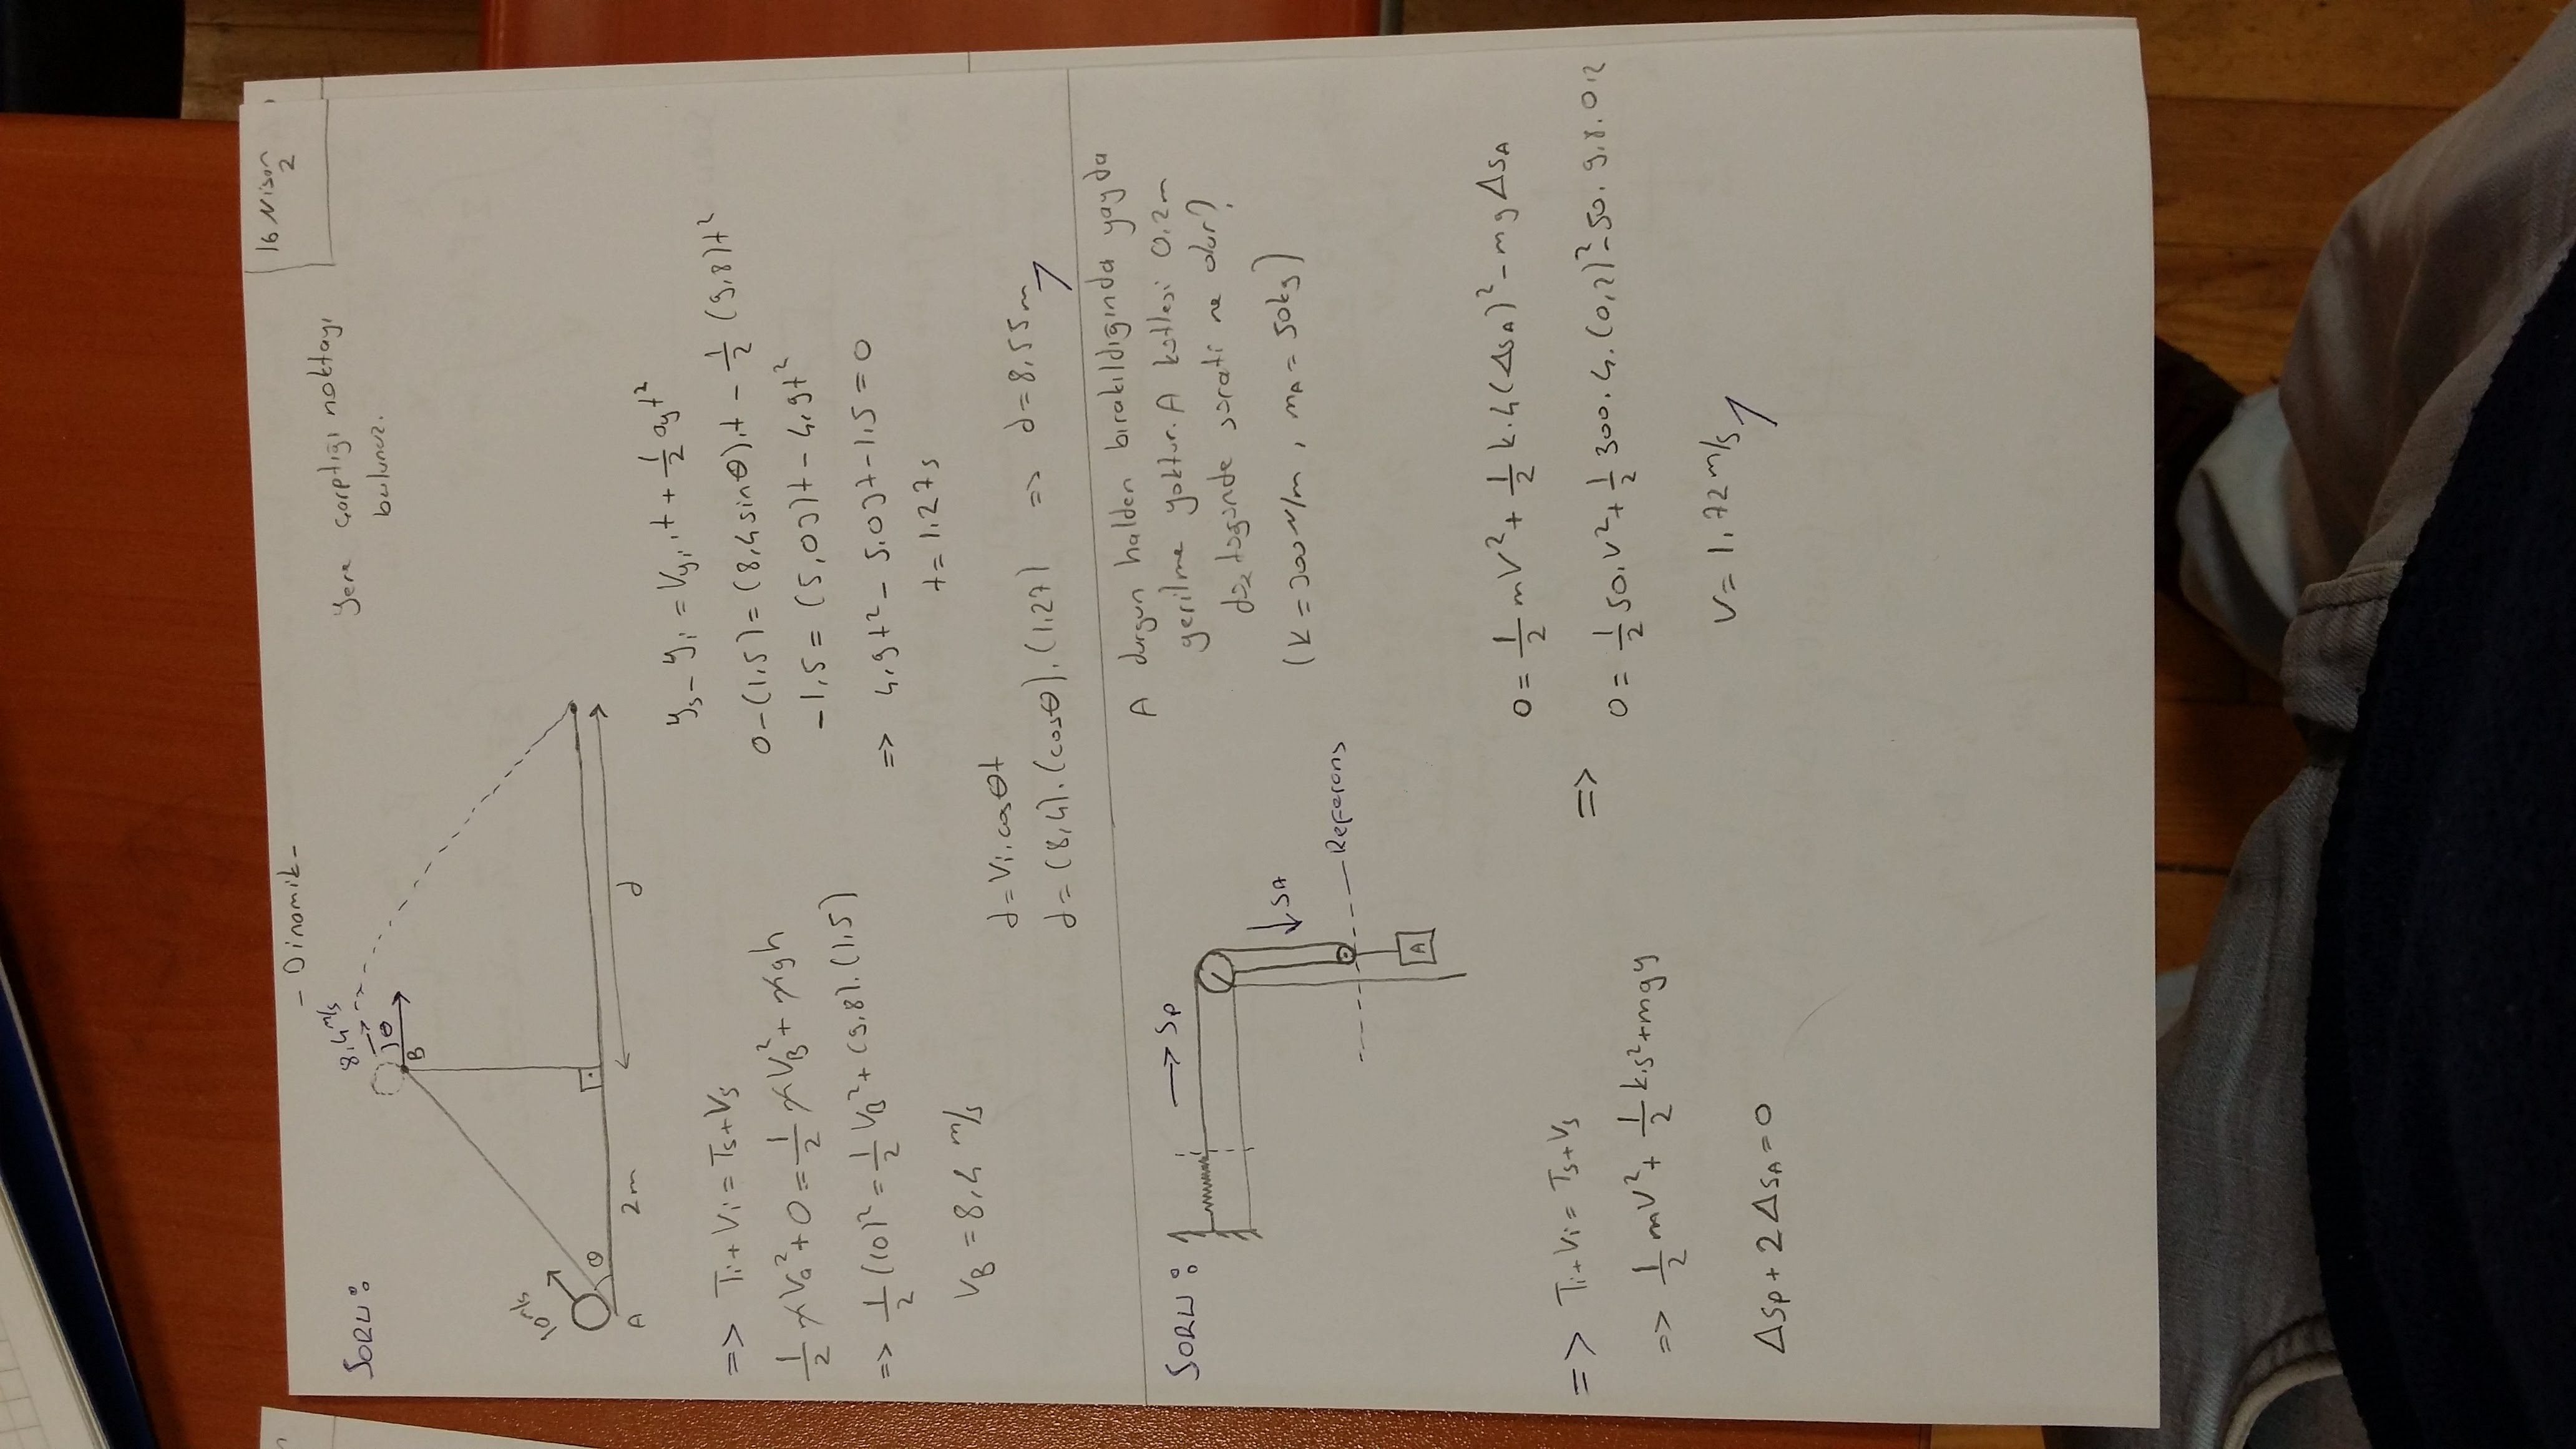 - Dinamik -
16 Nisan
2
SORU:
Yere çarptığı noktayı
bulunuz.
8,4 m/s
θ
B
10 m/s
θ
A
2m
d
=> Ti + Vi = Ts + Vs
1/2 mVa² + 0 = 1/2 mVB² + mgh
=> 1/2 (10)² = 1/2 VB² + (9,8).(1,5)
VB = 8,4 m/s
ys - yi = Vyi.t + 1/2 ayt²
0-(1,5) = (8,4 sinθ).t - 1/2 (9,8)t²
-1,5 = (5,03)t - 4,9t²
=> 4,9t² - 5,03t - 1,5 = 0
t = 1,27 s
d = Vi.cosθt
d = (8,4).(cosθ).(1,27) => d = 8,55m
SORU:
A durgun halden bırakıldığında yayda
gerilme yoktur. A kütlesi 0,2m
düştüğünde sürati ne olur?
(k = 300 N/m , mA = 50kg)
→ Sp
↓ SA
Referans
A
=> Ti + Vi = Ts + Vs
=> 1/2 mV² + 1/2 k.s² + mgy
ΔSp + 2ΔSA = 0
0 = 1/2 mV² + 1/2 k.4(ΔSA)² - mgΔSA
=>
0 = 1/2 50.V² + 1/2 300.4.(0,2)² - 50.9,8.0,2
V = 1,72 m/s